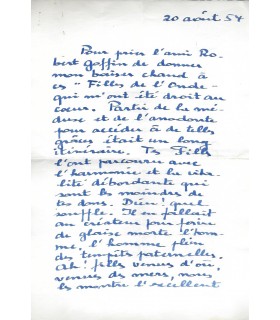 20 août 54
Pour prier l'ami Ro-
bert Goffin de donner
mon baiser chaud à
ces "Filles de l'Onde"
qui m'ont été droit au
coeur. Partir de la mé-
duse et de l'anodonte
pour accéder à de telles
grâces était un long
itinéraire. Tes Filles
l'ont parcouru avec
l'harmonie et la vita-
lité débordante qui
sont les moindres de
tes dons. Dieu! quel
souffle. Il en fallait
au créateur pour faire
de glaise morte l'hom-
me, l'homme plein
des tempêtes paternelles.
Ah! filles venues d'où,
venues des mers, nous
les montre l'excellent